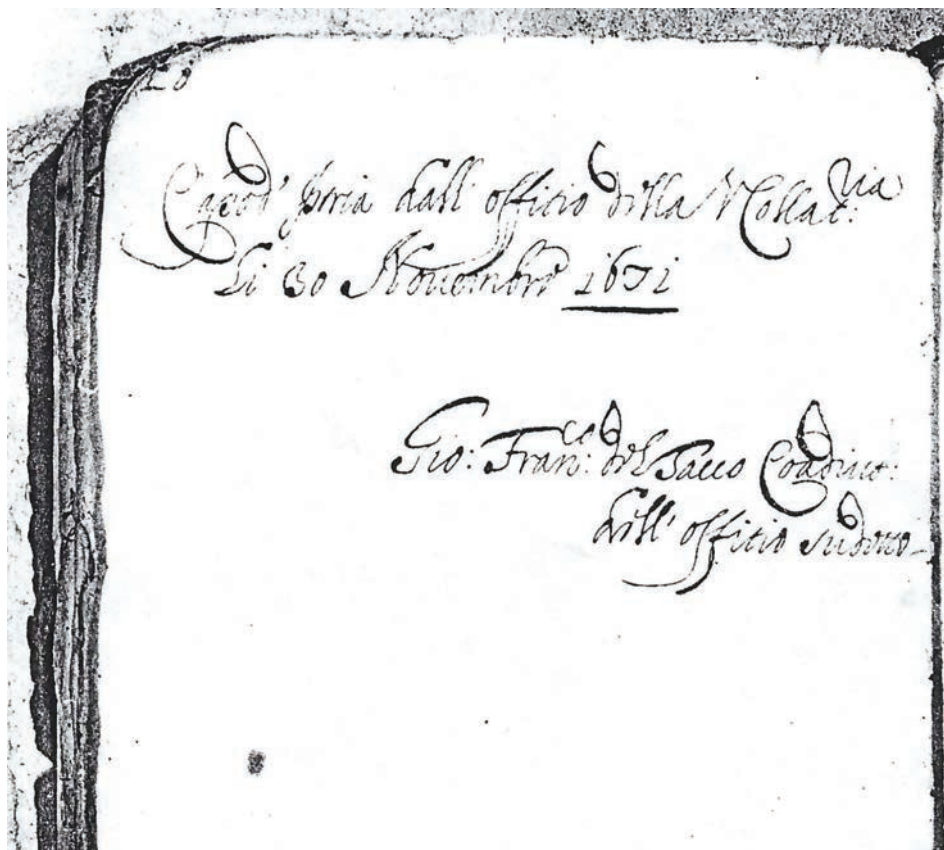 Capod' Istria dall' officio della V. Collat:ria
Li 30 Novembre 1671
Gio: Fran:co del Tacco Coadiut:
dell' officio sudetto